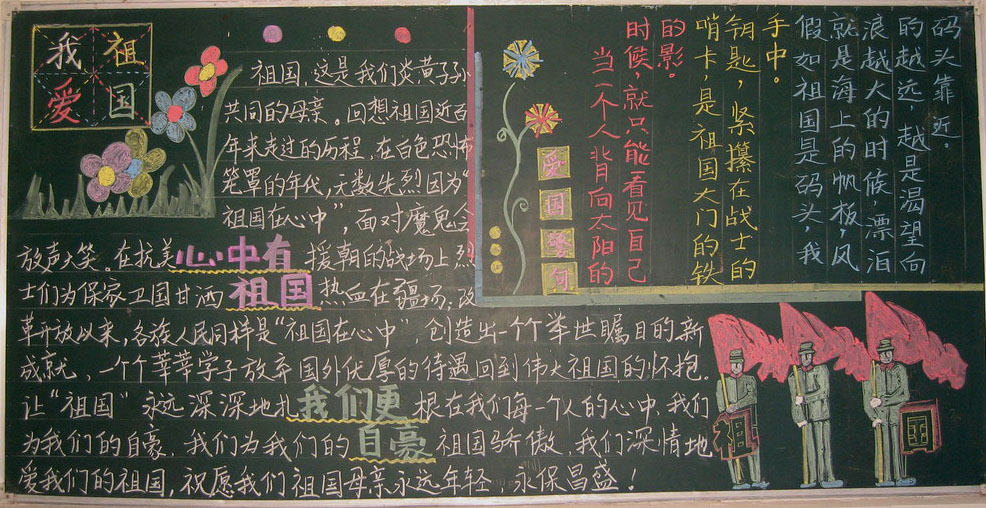 我爱
祖国
祖国，这是我们炎黄子孙
共同的母亲。回想祖国近百
年来走过的历程，在白色恐怖
笼罩的年代，无数先烈因为“
祖国在心中”，面对魔鬼会
放声大笑。在抗美心中有援朝的战场上烈
士们为保家卫国甘洒祖国热血在疆场；改
革开放以来，各族人民同样是“祖国在心中”，创造出一个个举世瞩目的新
成就、一个个莘莘学子放弃国外优厚的待遇回到伟大祖国的怀抱。
让“祖国”永远深深地扎我们更根在我们每一个人的心中，我们
为我们的自豪，我们为我们的自豪祖国骄傲，我们深情地
爱我们的祖国，祝愿我们祖国母亲永远年轻，永保昌盛！
爱国警句
当一个人背向太阳的
时候，就只能看见自己
的影。
哨卡，是祖国大门的铁
钥匙，紧攥在战士的
手中。
假如祖国是码头，我
就是海上的帆板，风
浪越大的时候，漂泊
的越远，越是渴望向
码头靠近。
国